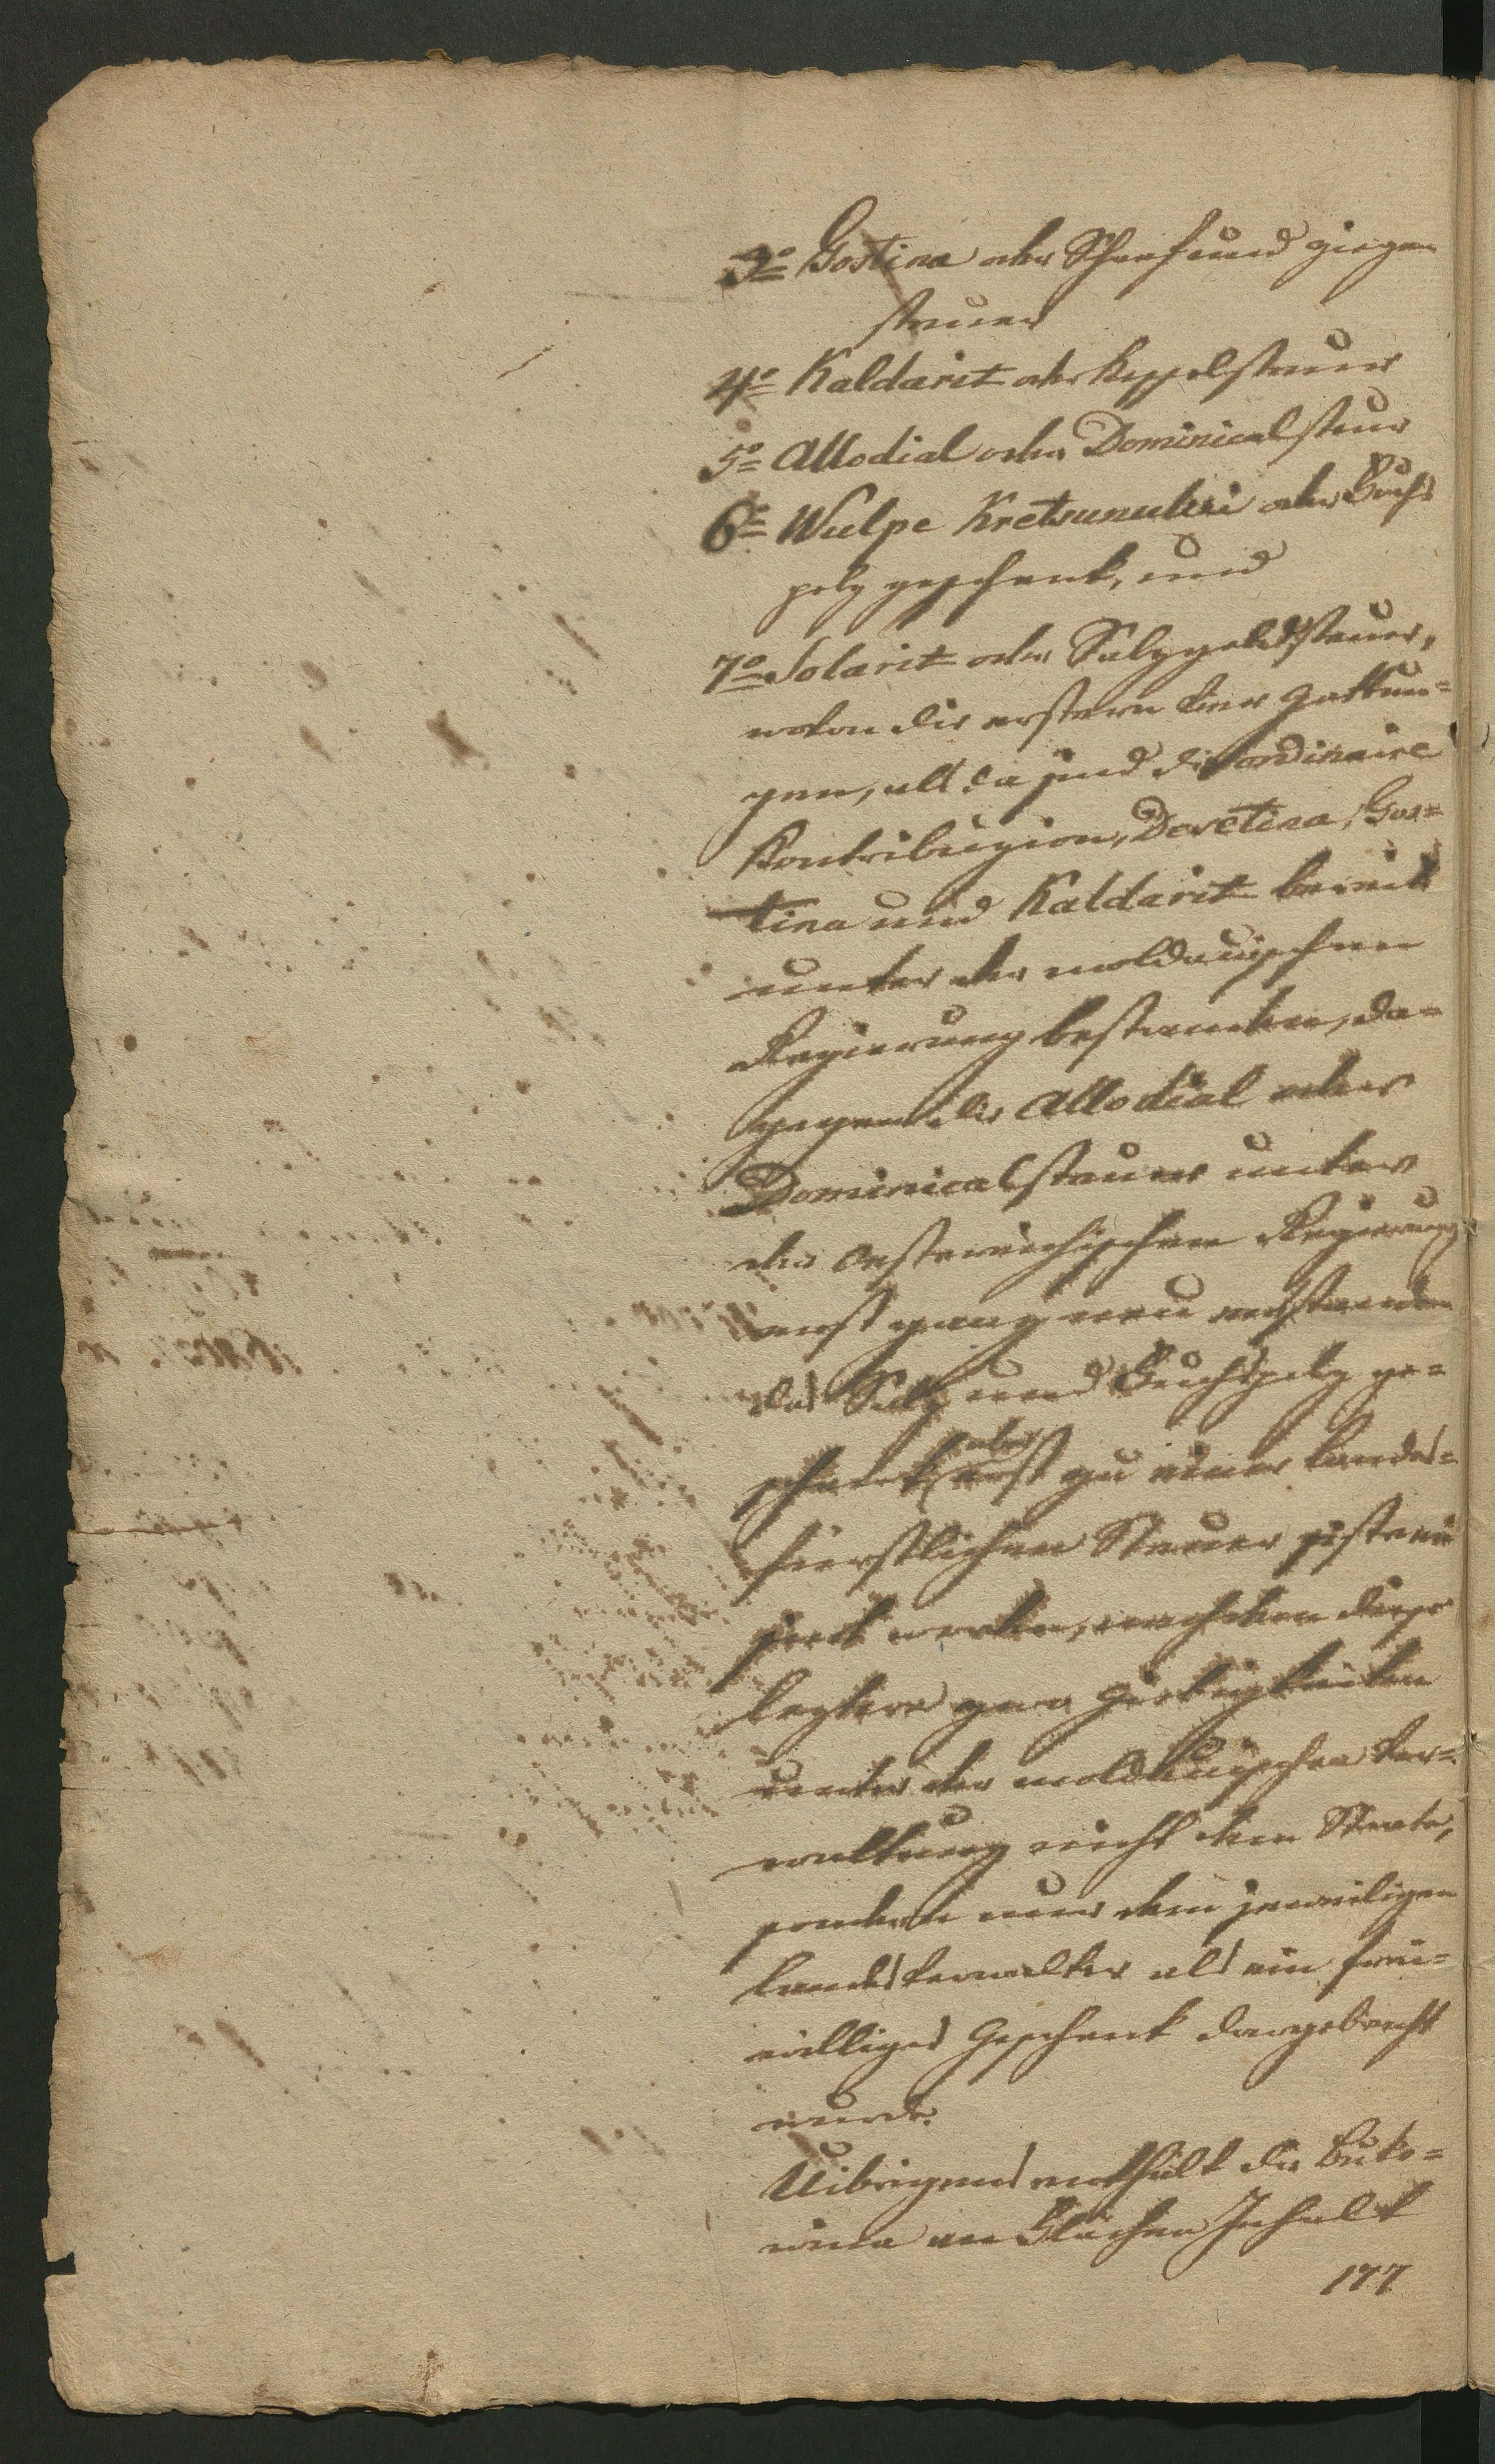 3o Gostina oder Schaf und ziegen
steuer
4o Kaldarit oder Kesselsteuer
5o Allodial oder Dominicalsteur
6o Wulpe Kretsunului oder Fuchs
pelz geschenk, und
7o Solarit oder Salzgeldsteuer,
wovon die erstern vier Gattun=
gen, als da sind die ordinaire
Kontribuzion, Desetina, Gos=
tina und Kaldarit bereits
unter der moldauischen
Regierung bestanden, da=
gegen die Allodial oder
Dominicalsteuer unter
der oesterreichischen Regierung
erst ganz neu entstanden
das Salz und Fuchspelz ge=
schenk aber erst zu einer landes=
fürstlichen Steuer
worden, nachdem diese
leztere zwo Giebigkeiten
unter der moldauischen Ver=
waltung nicht dem Staate,
sondern nur dem jeweiligen
Landesverwalter als ein frei=
williges Geschenk dargebracht
wurde.
Uibrigens enthält die Buko=
wina an Flächen Inhalt
177